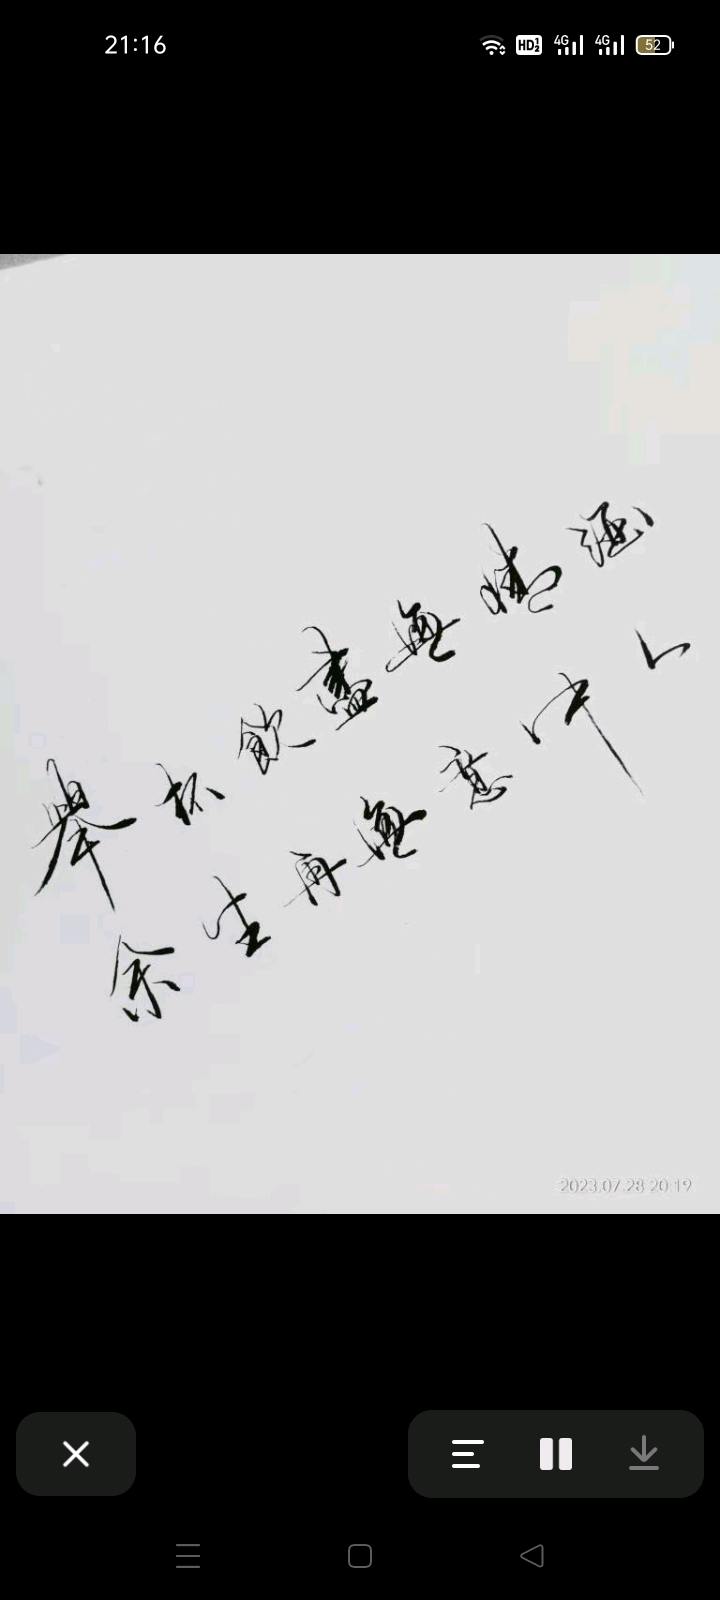 21:16
HD 1 2 4G 4G 52
舉杯飲盡無情酒
余生再無意中人
2023.07.28 20:19